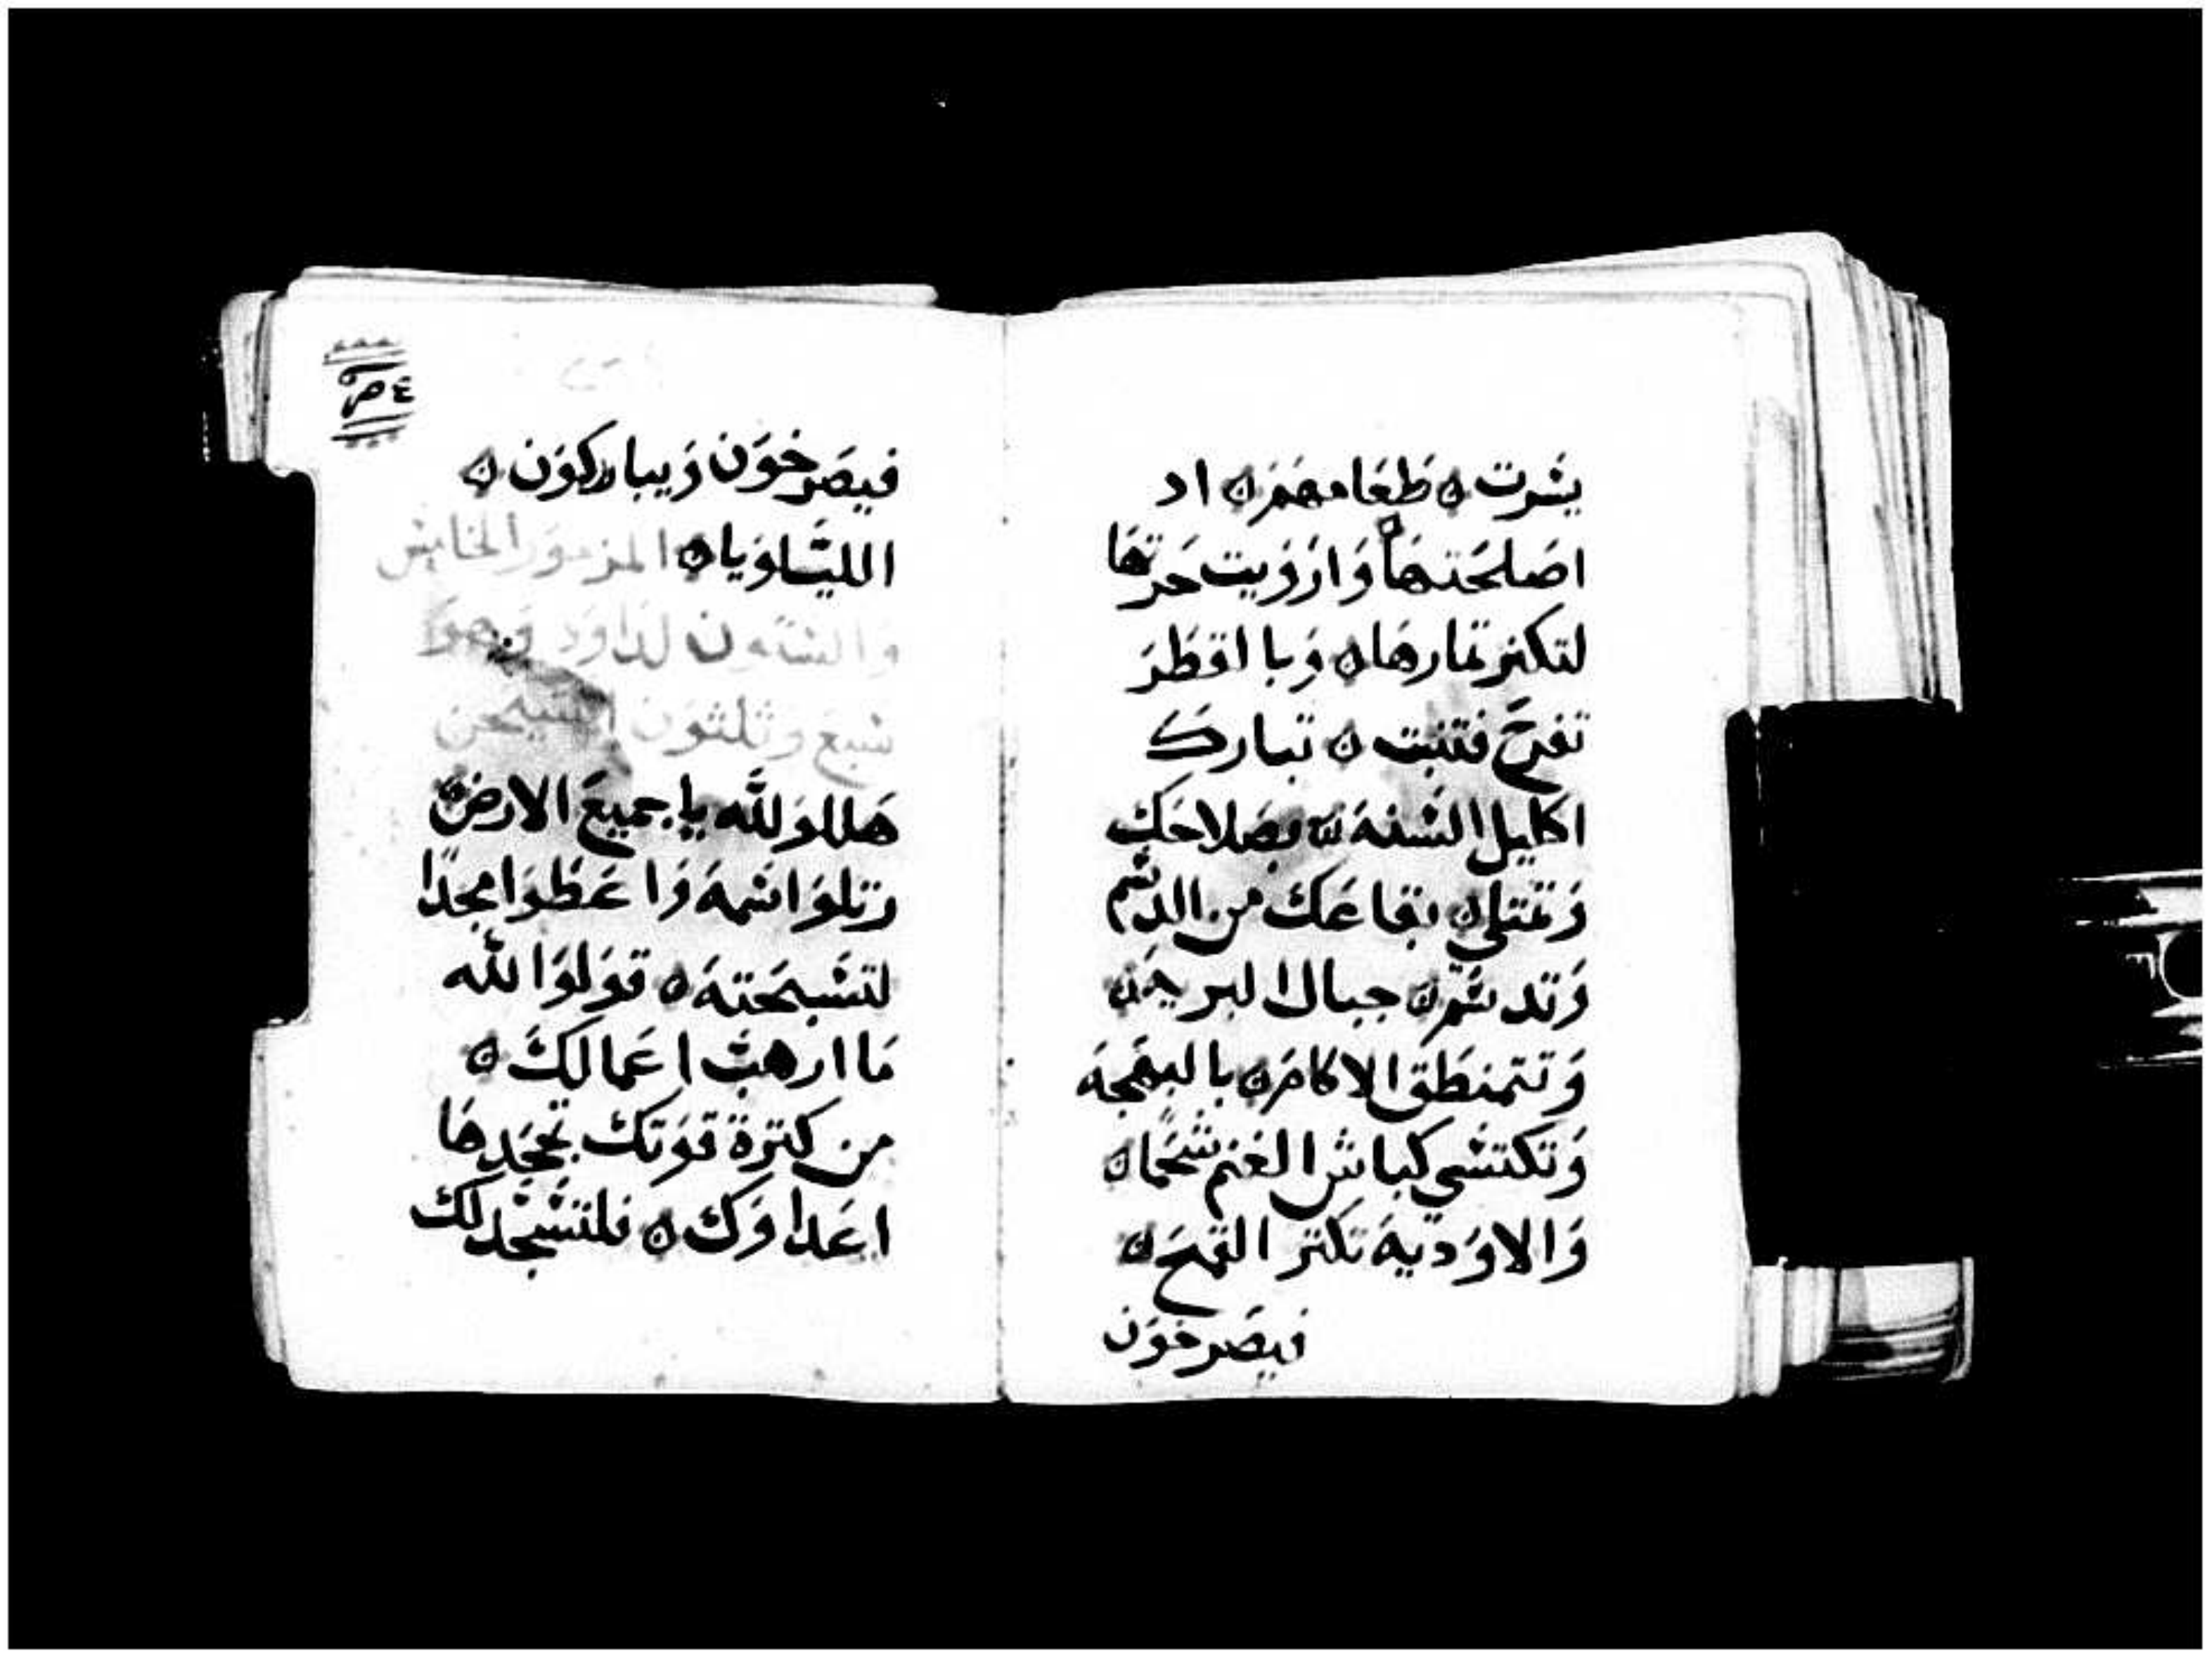 يسرت ه طعامهم ه اد
اصلحتها وارويت حرتها
لتكتر تمارها ه وبا اقطر
تفرح فتنبت ه تبارك
اكليل السنه ه بصلاحك
وتمتلي ه بقاعك من الدسم
وتدسم ه جبال البريه ه
وتتمنطق الاكام ه بالبهجه
وتكتسي كباش الغنم شحما ه
والاوديه تكتر القمح ه
فيصرخون
فيصرخون ويباركون ه
الليلويا ه المزمور الخامس
والستون لداود وهو
سبع وثلثون
هللو لله يا جميع الارض ه
رتلوا اسمه واعطوا مجدا
لتسبحته ه قولوا لله
ما ارهب اعمالك ه
من كترة قوتك تجحدها
اعداوك ه فلتسجد لك